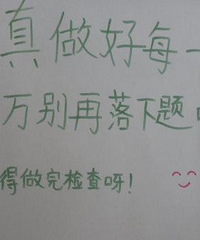 真做好每一
万别再落下题
得做完检查呀！